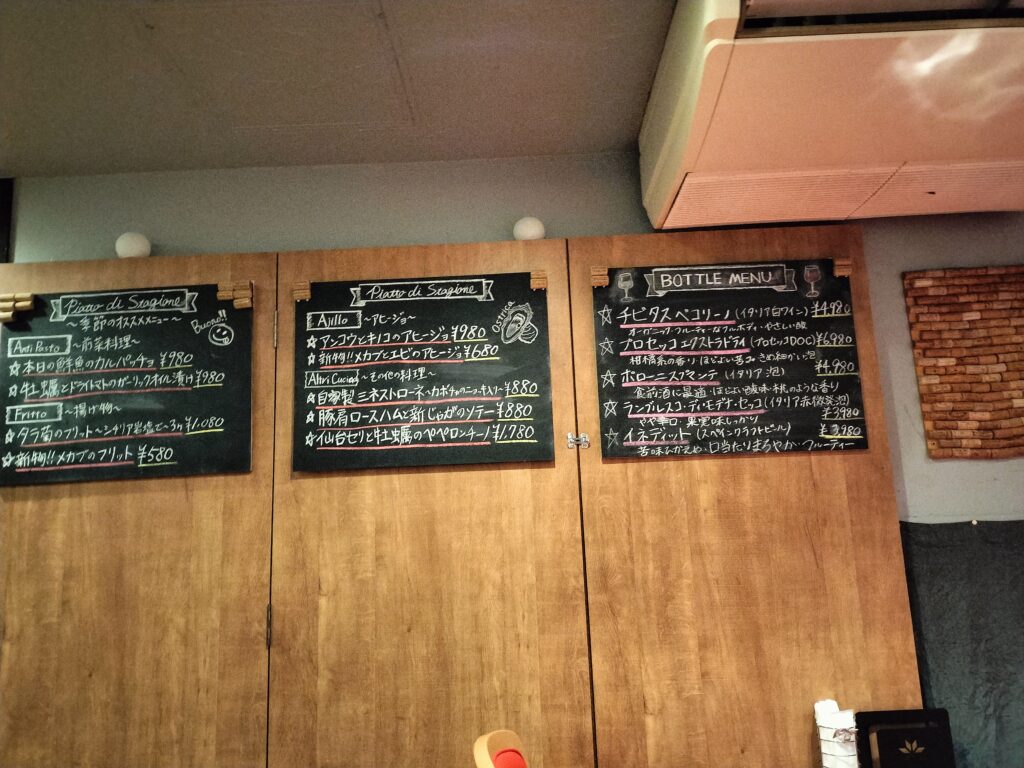 Piatto di Stagione
～季節のオススメメニュー～
Buono!!
Anti Pasto ～前菜料理～
☆本日の鮮魚のカルパッチョ ¥980
☆牡蠣とドライトマトのガーリックオイル漬け ¥980
Fritto ～揚げ物～
☆タラ菊のフリット～シチリア岩塩で～ ¥1,080
☆新物!!メカブのフリット ¥580
Piatto di Stagione
Ajillo ～アヒージョ～
Ostrica
☆アンコウとキノコのアヒージョ ¥980
☆新物!!メカブとエビのアヒージョ ¥680
Altri Cucina ～その他の料理～
☆自家製ミネストローネ～カボチャのニョッキ入り～ ¥880
☆豚肩ロースハムと新じゃがのソテー ¥880
☆仙台セリと牡蠣のペペロンチーノ ¥1,780
BOTTLE MENU
☆チビタス ペコリーノ (イタリア白ワイン) ¥4,980
オーガニック・フルーティーなフルボディ・やさしい酸
☆プロセッコ エクストラドライ (プロセッコDOC) ¥6,980
柑橘系の香り ほどよい苦み きめ細かい泡
☆ボローニ スプマンテ (イタリア 泡) ¥4,980
食前酒に最適・ほどよい酸味・桃のような香り
☆ランブルスコ・ディ・モデナ・セッコ (イタリア赤微発泡)
やや辛口・果実味しっかり ¥3,980
☆イネディット (スペインクラフトビール) ¥3,980
苦味ひかえめ、口当たりまろやか フルーティー